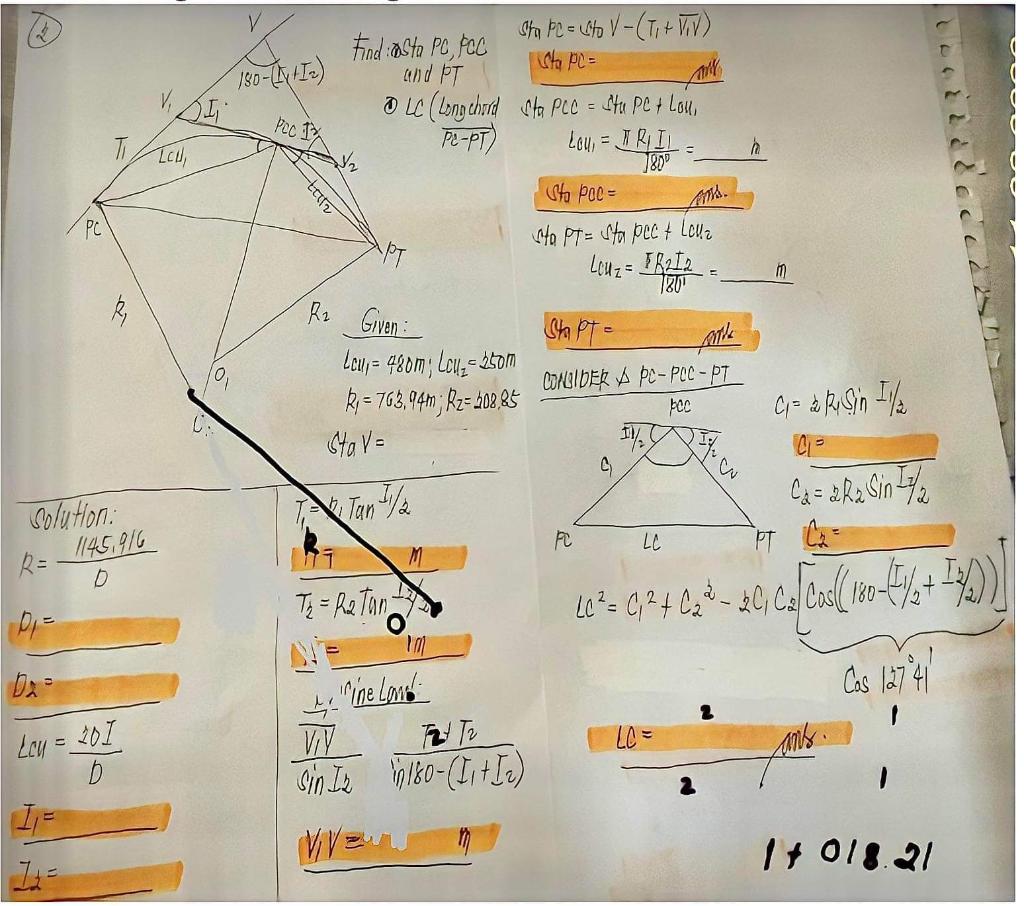 2
V
180-(I1+I2)
V1
I1
PCC I2
V2
T1
LCU1
LCU2
PC
PT
R1
R2
O1
Find: Sta PC, PCC
and PT
LC (Long chord
PC-PT)
Given:
LCU1= 480m; LCU2= 250m
R1= 763.94m; R2= 208.35
Sta V=
Solution:
R= 1145.916
D
D1=
D2=
LCU = 20I
D
I1=
I2=
T1= R1 Tan I1/2
R
M
T2= R2 Tan I2/2
O
= m
Sine Law:
V1V
Sin I2
T2+ T2
in 180-(I1+I2)
V1V = m
Sta PC = Sta V-(T1+V1V)
Sta PC= ans
Sta PCC = Sta PC + LCU1
LCU1 = π R1 I1 = m
180°
Sta PCC= ans.
Sta PT= Sta PCC + LCU2
LCU2 = π R2 I2 = m
180°
Sta PT= ans.
CONSIDER Δ PC-PCC-PT
PCC
I1/2 I2/2
C1 C2
PC LC PT
C1= 2R1 Sin I1/2
C1=
C2= 2R2 Sin I2/2
C2=
LC²= C1²+ C2²- 2C1 C2 [Cos((180-(I1/2+I2/2))]
Cos 127°41'
2 1
LC= ans.
2 1
1+ 018.21